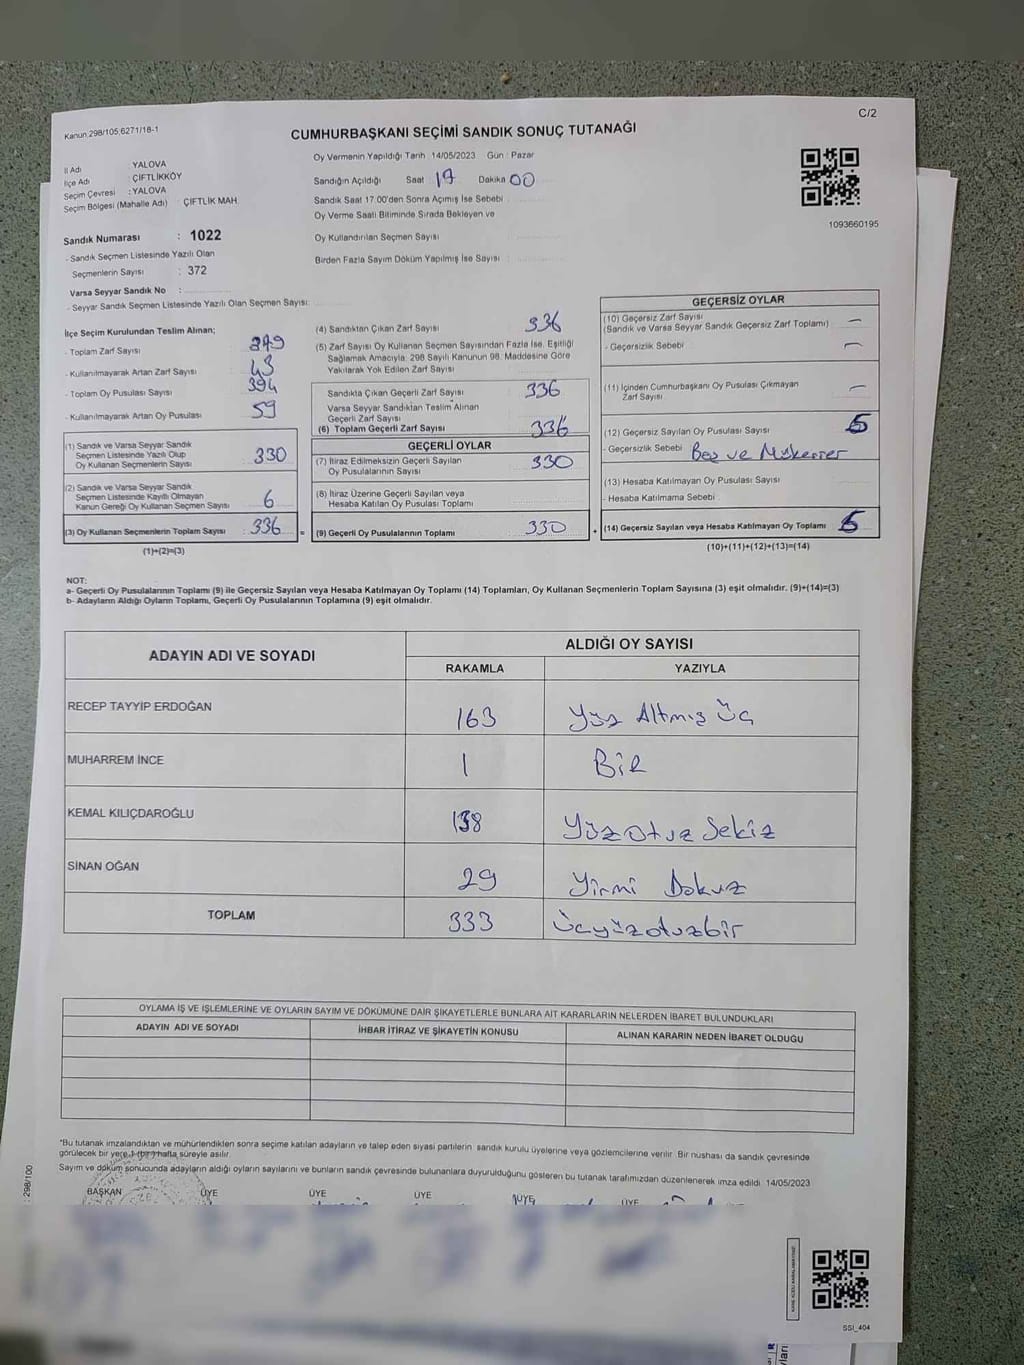 Kanun 298/105 6271/18-1
C/2
CUMHURBAŞKANI SEÇİMİ SANDIK SONUÇ TUTANAĞI
İl Adı : YALOVA
İlçe Adı : ÇİFTLİKKÖY
Seçim Çevresi : YALOVA
Seçim Bölgesi (Mahalle Adı) : ÇİFTLİK MAH.
Sandık Numarası : 1022
- Sandık Seçmen Listesinde Yazılı Olan
Seçmenlerin Sayısı : 372
Varsa Seyyar Sandık No :
- Seyyar Sandık Seçmen Listesinde Yazılı Olan Seçmen Sayısı:
Oy Vermenin Yapıldığı Tarih 14/05/2023 Gün : Pazar
Sandığın Açıldığı Saat 17 Dakika 00
Sandık Saat 17.00'den Sonra Açımış İse Sebebi
Oy Verme Saati Bitiminde Sırada Bekleyen ve
Oy Kullandırılan Seçmen Sayısı
Birden Fazla Sayım Döküm Yapılmış İse Sayısı :
1093660195
İlçe Seçim Kurulundan Teslim Alınan;
- Toplam Zarf Sayısı 379
- Kullanılmayarak Artan Zarf Sayısı 43
- Toplam Oy Pusulası Sayısı 394
- Kullanılmayarak Artan Oy Pusulası 59
(1) Sandık ve Varsa Seyyar Sandık
Seçmen Listesinde Yazılı Olup
Oy Kullanan Seçmenlerin Sayısı 330
(2) Sandık ve Varsa Seyyar Sandık
Seçmen Listesinde Kayıtlı Olmayan
Kanun Gereği Oy Kullanan Seçmen Sayısı 6
(3) Oy Kullanan Seçmenlerin Toplam Sayısı 336 =
(1)+(2)=(3)
(4) Sandıktan Çıkan Zarf Sayısı 336
(5) Zarf Sayısı Oy Kullanan Seçmen Sayısından Fazla İse, Eşitliği
Sağlamak Amacıyla, 298 Sayılı Kanunun 98. Maddesine Göre
Yakılarak Yok Edilen Zarf Sayısı
Sandıkta Çıkan Geçerli Zarf Sayısı 336
Varsa Seyyar Sandıktan Teslim Alınan
Geçerli Zarf Sayısı
(6) Toplam Geçerli Zarf Sayısı 336
GEÇERLİ OYLAR
(7) İtiraz Edilmeksizin Geçerli Sayılan
Oy Pusulalarının Sayısı 330
(8) İtiraz Üzerine Geçerli Sayılan veya
Hesaba Katılan Oy Pusulası Toplamı
(9) Geçerli Oy Pusulalarının Toplamı 330 +
GEÇERSİZ OYLAR
(10) Geçersiz Zarf Sayısı —
(Sandık ve Varsa Seyyar Sandık Geçersiz Zarf Toplamı)
- Geçersizlik Sebebi —
(11) İçinden Cumhurbaşkanı Oy Pusulası Çıkmayan —
Zarf Sayısı
(12) Geçersiz Sayılan Oy Pusulası Sayısı
- Geçersizlik Sebebi Boş ve Mükerrer
(13) Hesaba Katılmayan Oy Pusulası Sayısı
- Hesaba Katılmama Sebebi
(14) Geçersiz Sayılan veya Hesaba Katılmayan Oy Toplamı
(10)+(11)+(12)+(13)=(14)
NOT:
a- Geçerli Oy Pusulalarının Toplamı (9) ile Geçersiz Sayılan veya Hesaba Katılmayan Oy Toplamı (14) Toplamları, Oy Kullanan Seçmenlerin Toplam Sayısına (3) eşit olmalıdır. (9)+(14)=(3)
b- Adayların Aldığı Oyların Toplamı, Geçerli Oy Pusulalarının Toplamına (9) eşit olmalıdır.
ADAYIN ADI VE SOYADI
ALDIĞI OY SAYISI
RAKAMLA YAZIYLA
RECEP TAYYİP ERDOĞAN 163 Yüz Altmış Üç
MUHARREM İNCE 1 Bir
KEMAL KILIÇDAROĞLU 138 Yüzotuz Sekiz
SİNAN OĞAN 29 Yirmi Dokuz
TOPLAM 333 Üçyüzotuzbir
OYLAMA İŞ VE İŞLEMLERİNE VE OYLARIN SAYIM VE DÖKÜMÜNE DAİR ŞİKAYETLERLE BUNLARA AİT KARARLARIN NELERDEN İBARET BULUNDUKLARI
ADAYIN ADI VE SOYADI İHBAR İTİRAZ VE ŞİKAYETİN KONUSU ALINAN KARARIN NEDEN İBARET OLDUĞU
*Bu tutanak imzalandıktan ve mühürlendikten sonra seçime katılan adayların ve talep eden siyasi partilerin sandık kurulu üyelerine veya gözlemcilerine verilir. Bir nüshası da sandık çevresinde
görülecek bir yere 1 (bir) hafta süreyle asılır.
Sayım ve döküm sonucunda adayların aldığı oyların sayılarını ve bunların sandık çevresinde bulunanlara duyurulduğunu gösteren bu tutanak tarafımızdan düzenlenerek imza edildi 14/05/2023
BAŞKAN ÜYE ÜYE ÜYE ÜYE ÜYE
: 298/100
SSI_404